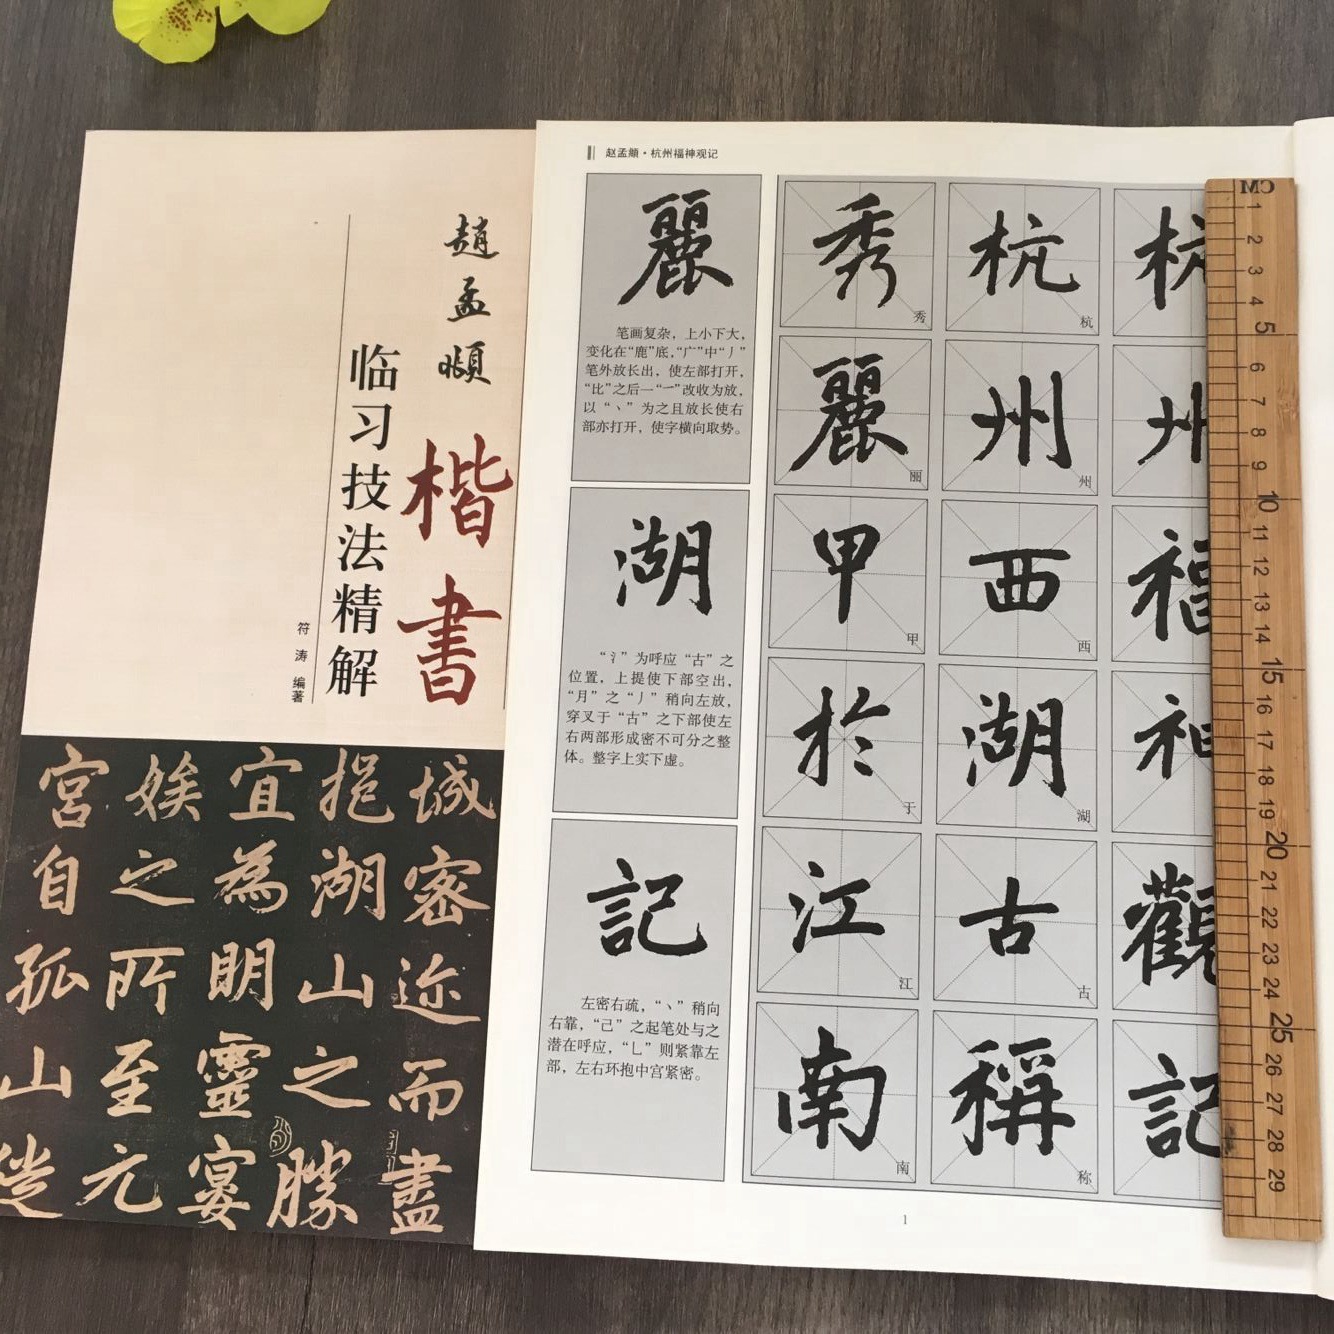 趙孟頫
楷書
临习技法精解
符涛 编著
城密迩而盡
挹湖山之勝
宜為明靈宴
娭之所至元
宮自孤山徙
赵孟頫·杭州福神观记
麗
笔画复杂，上小下大，
变化在“鹿”底，“广”中“丿”
笔外放长出，使左部打开，
“比”之后一“㇀”改收为放，
以“丶”为之且放长使右
部亦打开，使字横向取势。
湖
“氵”为呼应“古”之
位置，上提使下部空出，
“月”之“丿”稍向左放，
穿叉于“古”之下部使左
右两部形成密不可分之整
体。整字上实下虚。
記
左密右疏，“丶”稍向
右靠，“己”之起笔处与之
潜在呼应，“乚”则紧靠左
部，左右环抱中宫紧密。
杭州福神觀記
杭州西湖古稱
杭 州 西 湖 古 称
秀麗甲於江南
秀 丽 甲 于 江 南
1
CM
1 2 3 4 5 6 7 8 9 10 11 12 13 14 15 16 17 18 19 20 21 22 23 24 25 26 27 28 29